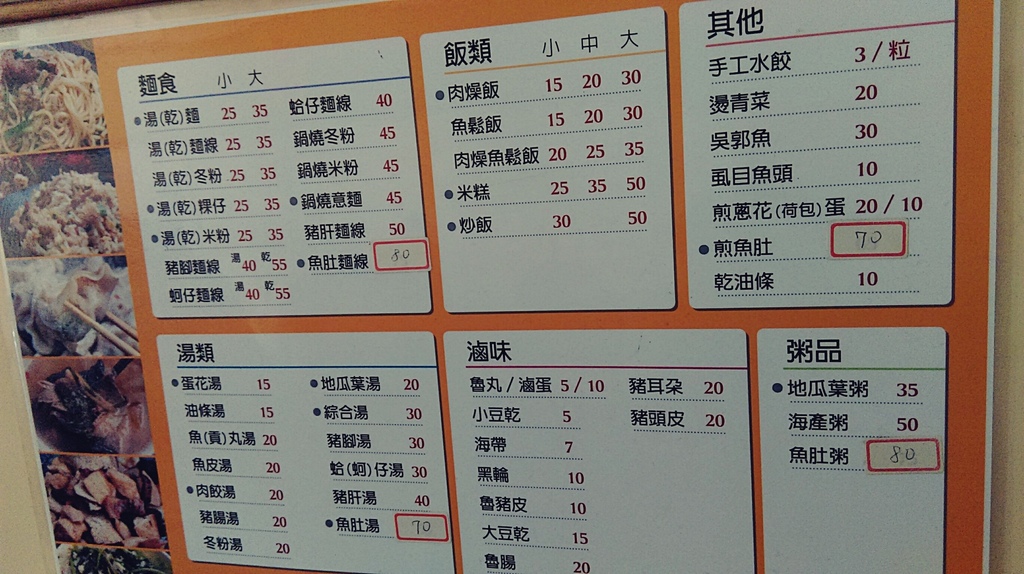 麵食 小 大
• 湯(乾)麵 25 35
湯(乾)麵線 25 35
湯(乾)冬粉 25 35
• 湯(乾)粿仔 25 35
• 湯(乾)米粉 25 35
豬腳麵線 湯40 乾55
蚵仔麵線 湯40 乾55
蛤仔麵線 40
鍋燒冬粉 45
鍋燒米粉 45
• 鍋燒意麵 45
豬肝麵線 50
• 魚肚麵線 80
飯類 小 中 大
• 肉燥飯 15 20 30
魚鬆飯 15 20 30
肉燥魚鬆飯 20 25 35
• 米糕 25 35 50
• 炒飯 30 50
其他
手工水餃 3/粒
燙青菜 20
吳郭魚 30
虱目魚頭 10
煎蔥花(荷包)蛋 20/10
• 煎魚肚 70
乾油條 10
湯類
• 蛋花湯 15
油條湯 15
魚(貢)丸湯 20
魚皮湯 20
• 肉餃湯 20
豬腸湯 20
冬粉湯 20
• 地瓜葉湯 20
• 綜合湯 30
豬腳湯 30
蛤(蚵)仔湯 30
豬肝湯 40
• 魚肚湯 70
滷味
魯丸/滷蛋 5/10
小豆乾 5
海帶 7
黑輪 10
魯豬皮 10
大豆乾 15
魯腸 20
豬耳朵 20
豬頭皮 20
粥品
• 地瓜葉粥 35
海產粥 50
魚肚粥 80